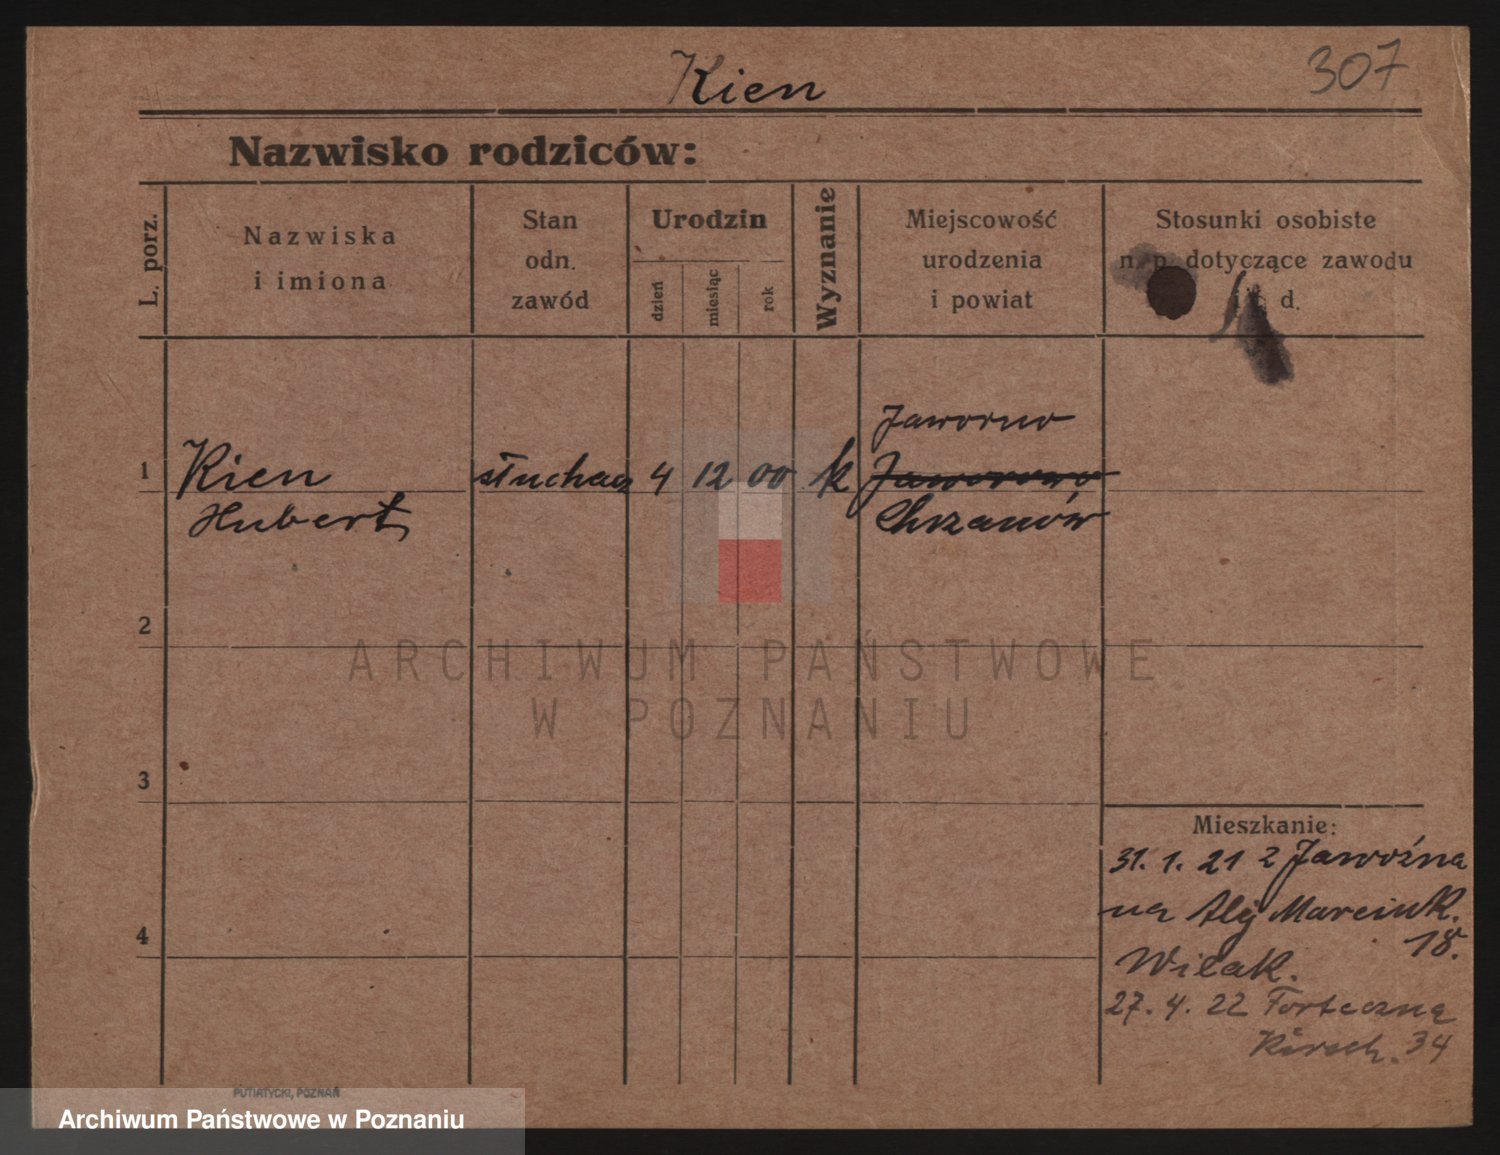 Kien
307
Nazwisko rodziców:
L. porz.
Nazwiska
i imiona
Stan
odn.
zawód
Urodzin
dzień
miesiąc
rok
Wyznanie
Miejscowość
urodzenia
i powiat
Stosunki osobiste
n. p. dotyczące zawodu
i t. d.
Jaworno
1 Kien słuchacz 4 12 00 k
Hubert Chrzanów
2
ARCHIWUM PAŃSTWOWE
W POZNANIU
3
Mieszkanie:
31. 1. 21 z Jawoźna
na Alej Marcink.
18.
4
27. 4. 22 Forteczną
Kirsch. 34
PUTIATYCKI, POZNAŃ
Archiwum Państwowe w Poznaniu